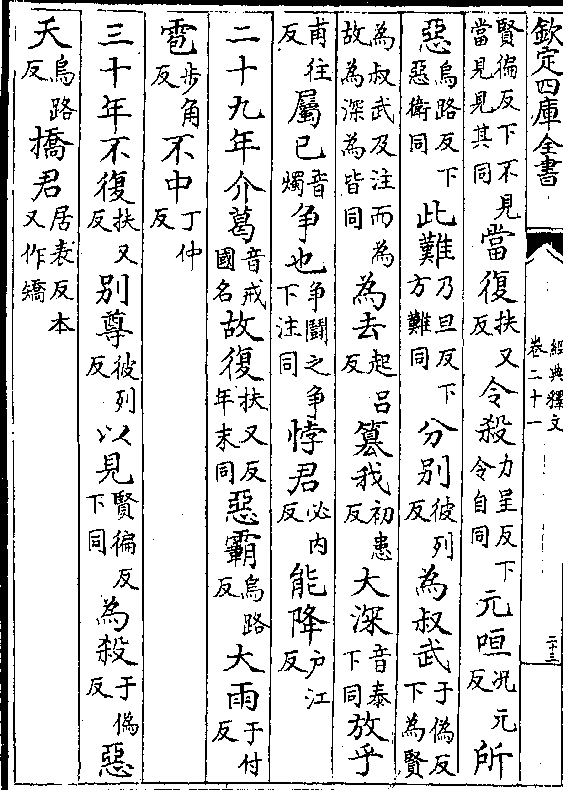 欽定四庫全書
經典釋文
卷二十一
二十三
賢徧反下不見當見見其同當復扶又反令殺力呈反下令自同元咺況元反所
惡烏路反下惡衛同此難乃旦反下方難同分別彼列反為叔武于偽反下為賢
為叔武及注而為故為深為皆同為去起呂反篡我初患反大深音泰下同放乎
甫往反屬已音燭爭也爭鬭之爭下注同悖君必内反能降户江反
二十九年介葛音戒國名故復扶又反年末同惡霸烏路反大雨于付反
雹步角反不中丁仲反
三十年不復扶又反别尊彼列反以見賢徧反下同為殺于偽反惡
天烏路反撟君居表反本又作矯